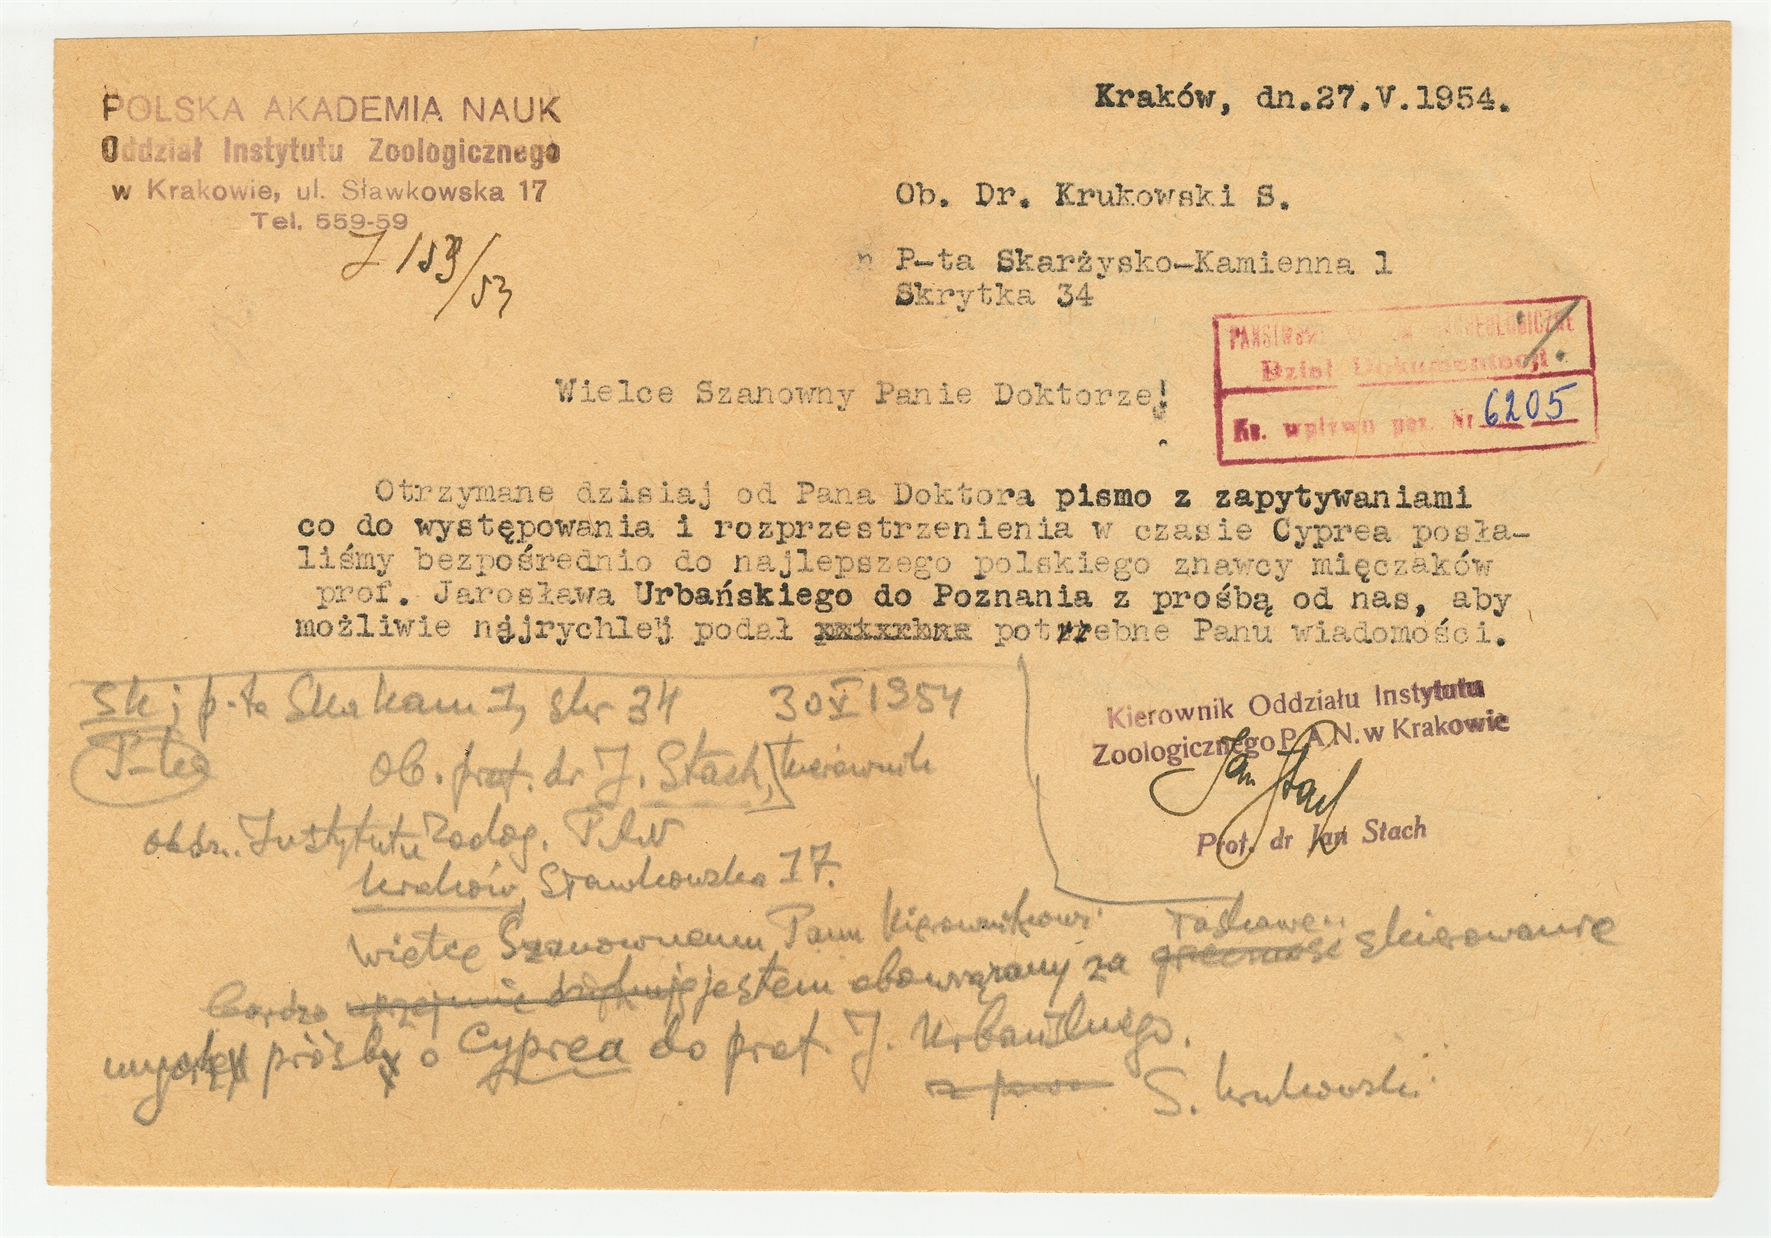 POLSKA AKADEMIA NAUK
Oddział Instytutu Zoologicznego
w Krakowie, ul. Sławkowska 17
Tel. 559-59
Kraków, dn.27.V.1954.
Ob. Dr. Krukowski S.
P-ta Skarżysko-Kamienna 1
Skrytka 34
PAŃSTWOWE ARCHEOLOGICZNE
Dział Dokumentacji
Ks. wpływu poz. Nr 6205
Wielce Szanowny Panie Doktorze!
Otrzymane dzisiaj od Pana Doktora pismo z zapytywaniami
co do występowania i rozprzestrzenienia w czasie Cyprea posła-
liśmy bezpośrednio do najlepszego polskiego znawcy mięczaków
prof. Jarosława Urbańskiego do Poznania z prośbą od nas, aby
możliwie najrychlej podał potrzebne Panu wiadomości.
Kierownik Oddziału Instytutu
Zoologicznego P.A.N. w Krakowie
Jan Stach
Prof. dr Jan Stach
Sk; p-ta Ska kam 1, skr 34 30 V 1954
P-ta
Ob. prof. dr J. Stach, kierownik
oddz. Instytutu Zoolog. PAN
Kraków, Sławkowska 17.
Wielce Szanownemu Panu Kierownikowi
łaskawe
bardzo uprzejmie dziękuję jestem obowiązany za grzeczność skierowanie
mojej prośby o Cyprea do prof. J. Urbańskiego.
S. Krukowski